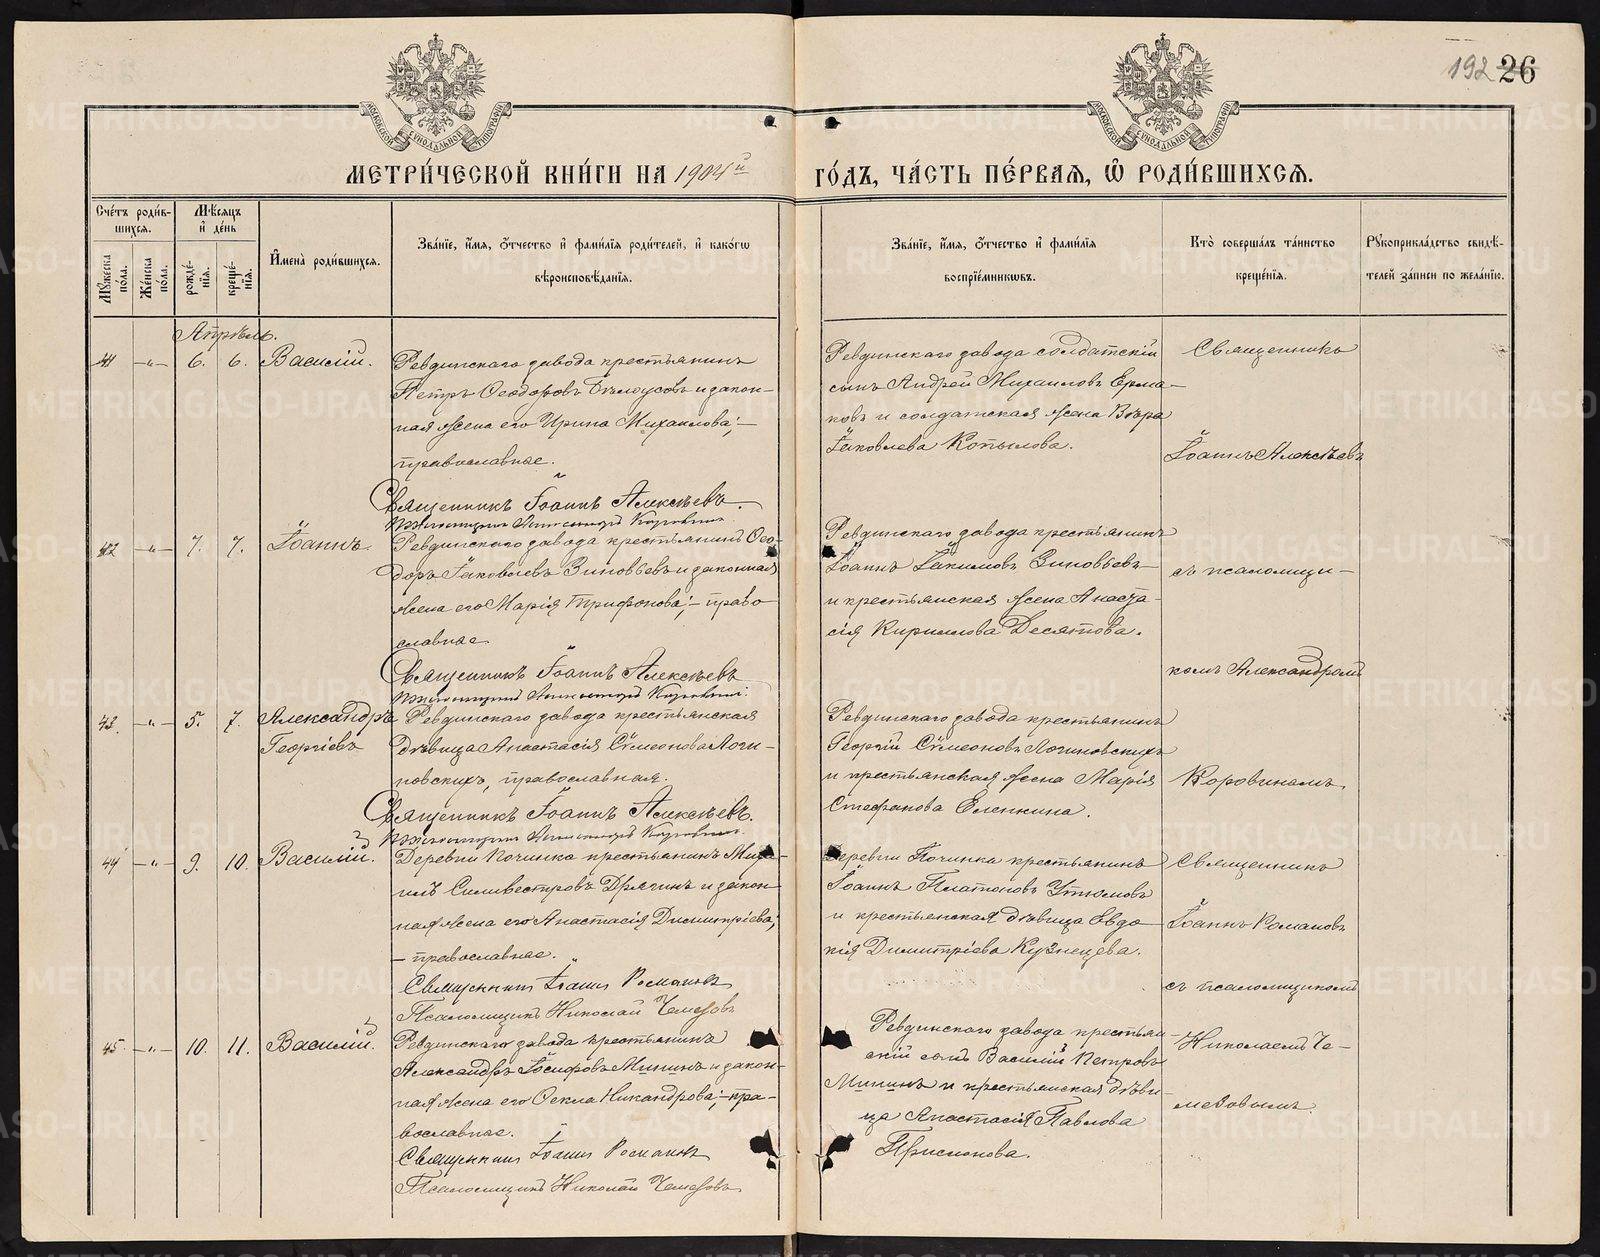 192 26
МОСКОВСКОЙ СѴНОДАЛЬНОЙ ТИПОГРАФІИ
МОСКОВСКОЙ СѴНОДАЛЬНОЙ ТИПОГРАФІИ
МЕТРИ́ЧЕСКОЙ КНИ́ГИ НА 1904й ГО́ДЪ, ЧА́СТЬ ПЕ́РВАѦ, Ѡ҆ РОДИ́ВШИХСѦ.
Сче́тъ роди́в-
шихсѧ.
Мꙋ́жеска по́ла.
Же́нска по́ла.
Мѣ́сѧцъ и҆ де́нь
рожде́-
нїѧ.
креще́-
нїѧ.
И҆мена̀ роди́вшихсѧ.
Зва́нїе, и҆́мѧ, ѻ҆́тчество и҆ фами́лїѧ роди́телей, и҆ како́гѡ
вѣроисповѣ́данїѧ.
Зва́нїе, и҆́мѧ, ѻ҆́тчество и҆ фами́лїѧ
воспрїе́мникѡвъ.
Кто̀ соверша́лъ та́инство
креще́нїѧ.
Рꙋкоприкла́дство свидѣ́-
телей за́писи по жела́нїю.
Апрѣль.
41 -„- 6. 6. Василій.
Ревдинскаго завода крестьянинъ
Петръ Ѳеодоровъ Бѣлоусовъ и закон-
ная жена его Ирина Михаилова; —
православные.
Священникъ Іоаннъ Алексѣевъ.
Псаломщикъ Александръ Коровинъ
Ревдинскаго завода солдатскій
сынъ Андрей Михаиловъ Ерма-
ковъ и солдатская жена Вѣра
Іаковлева Копылова.
Священникъ
Іоаннъ Алексѣевъ
42 -„- 7. 7. Іоаннъ.
Ревдинскаго завода крестьянинъ Ѳео-
доръ Іаковлевъ Зиновьевъ и законная
жена его Марія Трифонова; — право-
славные
Священникъ Іоаннъ Алексѣевъ
Псаломщикъ Александръ Коровинъ.
Ревдинскаго завода крестьянинъ
Іоаннъ Іакимовъ Зиновьевъ —
и крестьянская жена Анаста-
сія Кириллова Десятова.
съ псаломщи-
комъ Александромъ
43. -„- 5. 7. Александръ
Георгіевъ
Ревдинскаго завода крестьянская
дѣвица Анастасія Сѵмеонова Логи-
новскихъ, православная.
Священникъ Іоаннъ Алексѣевъ.
Псаломщикъ Александръ Коровинъ.
Ревдинскаго завода крестьянинъ
Георгій Сѵмеоновъ Логиновскихъ
и крестьянская жена Марія
Стефанова Еленкина.
Коровинамъ
44 -„- 9. 10. Василій.
Деревни Починка крестьянинъ Миха-
илъ Силивестровъ Дрягинъ и закон-
ная жена его Анастасія Димитріева;
— православные.
Священникъ Іоаннъ Романовъ
Псаломщикъ Николай Чемезовъ
Деревни Починка крестьянинъ
Іоаннъ Платоновъ Утюмовъ
и крестьянская дѣвица Евдо-
кія Димитріева Кузнецева.
Священникъ
Іоаннъ Романовъ
съ псаломщикомъ
45. -„- 10. 11. Василій.
Ревдинскаго завода крестьянинъ
Александръ Іосифовъ Мининъ и закон-
ная жена его Ѳекла Никандрова; — пра-
вославные.
Священникъ Іоаннъ Романовъ
Псаломщикъ Николай Чемезовъ
Ревдинскаго завода крестьян-
скій сынъ Василій Петровъ
Мининъ и крестьянская дѣви-
ца Анастасія Павлова
Николаемъ Че-
мезовымъ.